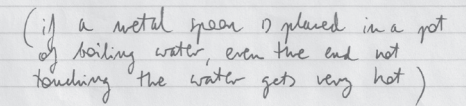 (if a metal spoon is placed in a pot
of boiling water, even the end not
touching the water gets very hot)